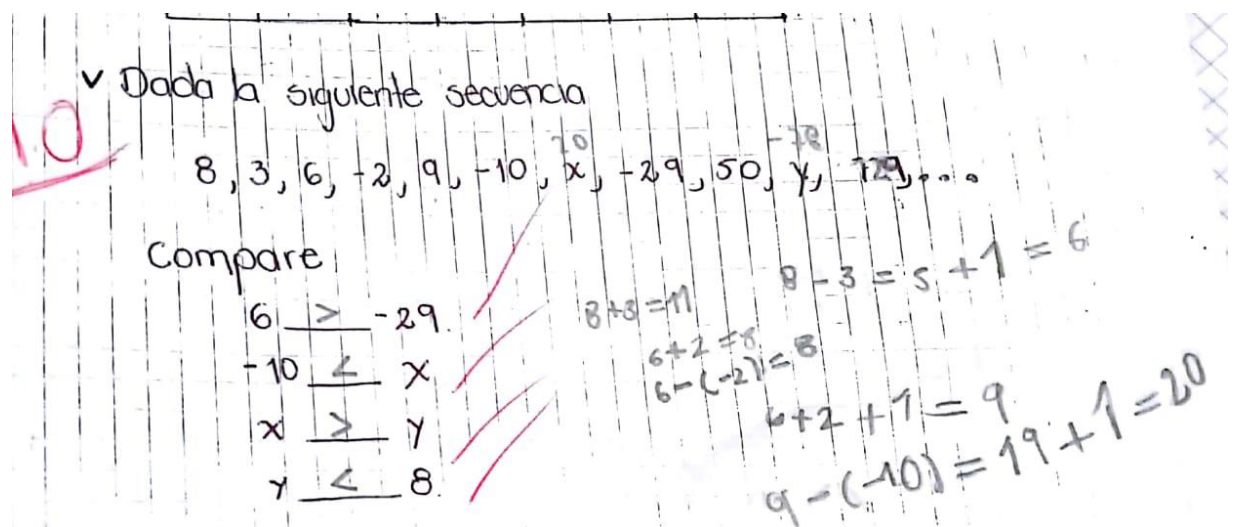 v Dada la siguiente secuencia
10
20 -78
8, 3, 6, -2, 9, -10, x, -29, 50, y, 129,...
Compare
6 > -29.
-10 < x
x > y
y < 8.
8-3=5+1=6
8+3=11
6+2=8
6-(-2)=8
6+2+1=9
9-(-10)=19+1=20